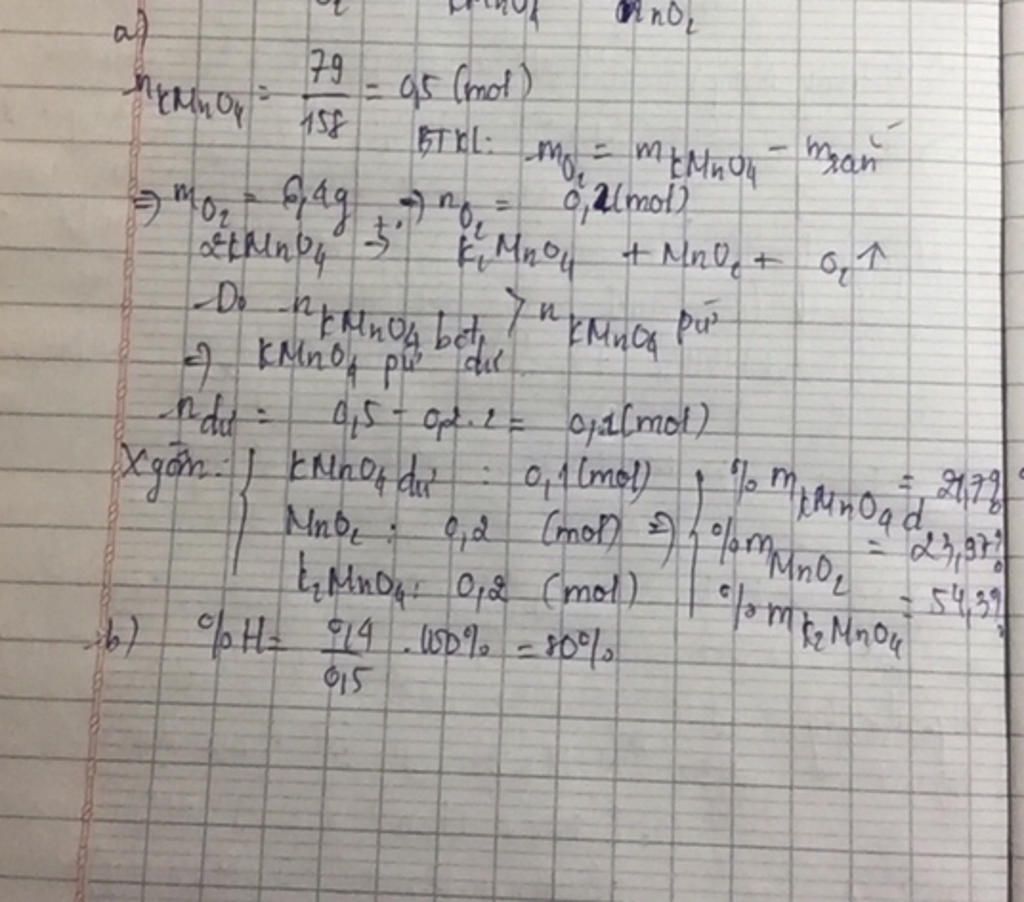 a)
nKMnO4 = 79/158 = 0,5 (mol)
BTKL: mO2 = mKMnO4 - mrắn
=> mO2 = 6,4g => nO2 = 0,2(mol)
2KMnO4 t° K2MnO4 + MnO2 + O2↑
- Do nKMnO4 bđ > nKMnO4 pứ
=> KMnO4 pứ dư
ndư = 0,5 - 0,2.2 = 0,1(mol)
X gồm: { KMnO4 dư : 0,1(mol) } % mKMnO4 d = 21,78%
MnO2 : 0,2 (mol) => { %mMnO2 = 23,97%
K2MnO4 : 0,2 (mol) % mK2MnO4 = 54,3%
b) %H = 0,4/0,5 . 100% = 80%